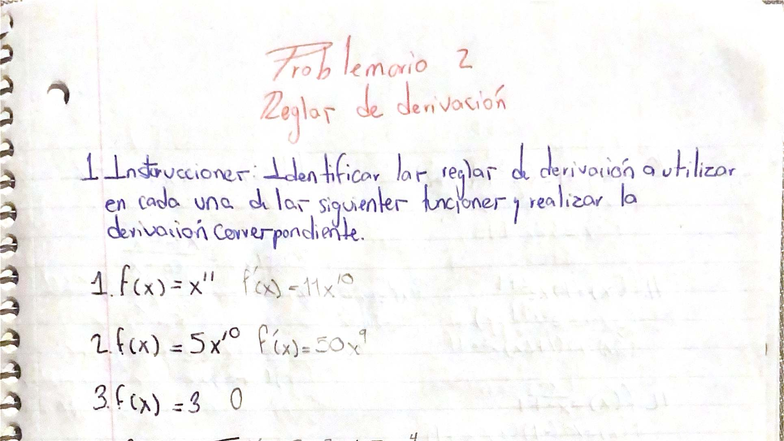 Problemario 2
Reglas de derivación
1 Instrucciones: Identificar las reglas de derivación a utilizar
en cada una de las siguientes funciones y realizar la
derivación correspondiente.
1. f(x) = x¹¹ f'(x) = 11x¹⁰
2. f(x) = 5x¹⁰ f'(x) = 50x⁹
3. f(x) = 3 0